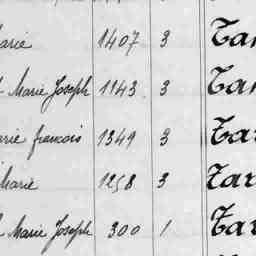 Marie 1407 3 Tar
Marie Joseph 1143 3 Tar
Marie francois 1349 3 Tar
Marie 1258 3 Tar
Marie Joseph 300 1 Tar